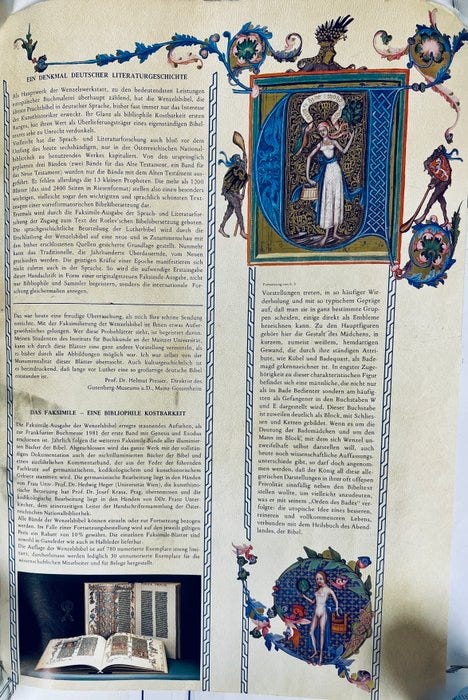 EIN DENKMAL DEUTSCHER LITERATURGESCHICHTE
Als Hauptwerk der Wenzelswerkstatt, zu den bedeutendsten Leistungen
europäischer Buchmalerei überhaupt zählend, hat die Wenzelsbibel, die
älteste Prachtbibel in deutscher Sprache, bisher fast immer nur das Interesse
der Kunsthistoriker erweckt. Ihr Glanz als bibliophile Kostbarkeit ersten
Ranges, hat ihren Wert als Überlieferungsträger eines eigenständigen Bibel-
textes sehr zu Unrecht verdunkelt.
Vielleicht hat die Sprach- und Literaturforschung auch bloß vor dem
Umfang des heute sechsbändigen, nur in der Österreichischen National-
bibliothek zu benutzenden Werkes kapituliert. Von den ursprünglich
geplanten drei Bänden (zwei Bände für das Alte Testament, ein Band für
das Neue Testament) wurden nur die Bände mit dem Alten Testament aus-
geführt. Es fehlen allerdings die 13 kleinen Propheten. Die mehr als 1200
Blätter (das sind 2400 Seiten in Riesenformat) stellen also eines besonders
wichtigen, vielleicht sogar den wichtigsten und sprachlich schönsten Text-
zeugen einer vorreformatorischen Bibelübersetzung dar.
Erstmals wird durch die Faksimile-Ausgabe der Sprach- und Literaturfor-
schung der Zugang zum Text der Rotlev'schen Bibelübersetzung geboten.
Die sprachgeschichtliche Beurteilung der Lutherbibel wird durch die
Erschließung der Wenzelsbibel auf eine neue und in Zusammenschau mit
den bisher erschlossenen Quellen gesicherte Grundlage gestellt. Nunmehr
kann das Traditionelle, die Jahrhunderte Überdauernde, vom Neuen
geschieden werden. Die geistigen Kräfte einer Epoche manifestieren sich
nicht zuletzt auch in der Sprache. So wird die aufwendige Erstausgabe
dieser Handschrift in Form einer originalgetreuen Faksimile-Ausgabe, nicht
nur Bibliophile und Sammler begeistern, sondern die internationale For-
schung gleichermaßen anregen.
Das war heute eine freudige Überraschung, als mich Ihre schöne Sendung
erreichte. Mit der Faksimilierung der Wenzelsbibel ist Ihnen etwas Außer-
gewöhnliches gelungen. Wer diese Probeblätter sieht, ist begeistert davon.
Meinen Studenten des Instituts für Buchkunde an der Mainzer Universität,
kann ich durch diese Blätter eine ganz andere Vorstellung vermitteln, als
es bisher durch alle Abbildungen möglich war. Ich war selbst von der
Monumentalität dieser Blätter überrascht. Auch kulturgeschichtlich ist
es beeindruckend, daß lange vor Luther eine so großartige deutsche Bibel
entstanden ist.
Prof. Dr. Helmut Presser, Direktor des
Gutenberg-Museums a.D., Mainz-Gonsenheim
DAS FAKSIMILE – EINE BIBLIOPHILE KOSTBARKEIT
Die Faksimile-Ausgabe der Wenzelsbibel erregte staunendes Aufsehen, als
zur Frankfurter Buchmesse 1981 der erste Band mit Genesis und Exodus
erschienen ist. Jährlich folgen die weiteren Faksimile-Bände aller illuminier-
ten Bücher der Bibel. Abgeschlossen wird das ganze Werk mit der vollstän-
digen Dokumentation auch der nichtilluminierten Bücher der Bibel und
eines ausführlichen Kommentarband, der aus der Feder der führenden
Fachleute auf germanistischem, kodikologischem und kunsthistorischem
Gebiete stammen wird. Die germanistische Bearbeitung liegt in den Händen
von Frau Univ.-Prof. Dr. Hedwig Heger (Universität Wien), die kunsthisto-
rische Bearbeitung hat Prof. Dr. Josef Krasa, Prag, übernommen und die
kodikologische Bearbeitung liegt in den Händen von DDr. Franz Unter-
kircher, dem seinerzeitigen Leiter der Handschriftensammlung der Öster-
reichischen Nationalbibliothek.
Alle Bände der Wenzelsbibel können einzeln oder zur Fortsetzung bezogen
werden. Im Falle einer Fortsetzungsbestellung wird auf den jeweils gültigen
Preis ein Rabatt von 10% gewährt. Die einzelnen Faksimile-Bände sind
sowohl in Ganzleder wie auch in Halbleder lieferbar.
Die Auflage der Wenzelsbibel ist auf 780 numerierte Exemplare streng limi-
tiert, darüberhinaus werden lediglich 30 unnumerierte Exemplare für die
wissenschaftlichen Mitarbeiter und für Belege hergestellt.
Fortsetzung von S. 5
Vorstellungen treten, in so häufiger Wie-
derholung und mit so typischem Gepräge
auf, daß man sie in ganz bestimmte Grup-
pen scheiden, einige direkt als Embleme
bezeichnen kann. Zu den Hauptfiguren
gehört hier die Gestalt des Mädchens, in
kurzem, zumeist weißem, hemdartigen
Gewand, die durch ihre ständigen Attri-
bute, wie Kübel und Badequast, als Bade-
magd gekennzeichnet ist. In engster Zuge-
hörigkeit zu dieser charakteristischen Figur
befindet sich eine männliche, die nicht nur
als im Bade Bedienter sondern am häufigst-
en als Gefangener in den Buchstaben W
und E dargestellt wird. Dieser Buchstabe
ist zuweilen deutlich als Block, mit Schlies-
sen und Ketten gebildet. Wenn es um die
Deutung der Bademädchen und um den
Mann im Block, mit dem sich Wenzel un-
zweifelhaft selbst darstellen will, auch
heute noch wissenschaftliche Auffassungs-
unterschiede gibt, so darf doch angenom-
men werden, daß der König all diese alle-
gorischen Darstellungen in ihrer oft offenen
Frivolität sinnfällig neben den Bibeltext
stellen wollte, um vielleicht anzudeuten,
was er mit seinem „Orden des Bades" ver-
folgte: die utopische Idee eines besseren,
reineren und vollkommeneren Lebens,
verbunden mit dem Heilsbuch des Abend-
landes, der Bibel.